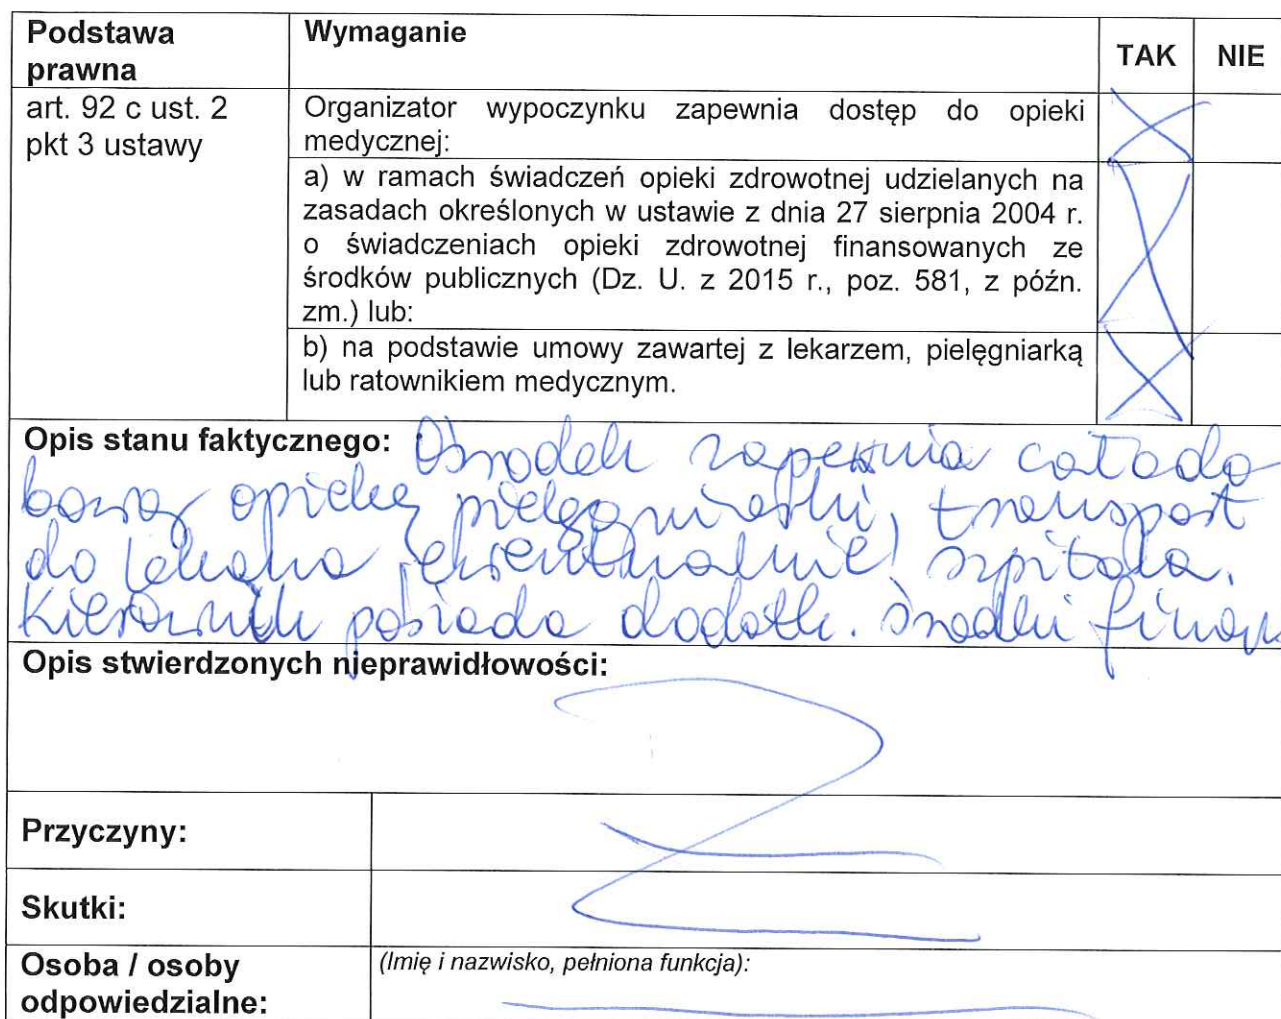 Podstawa prawna
Wymaganie
TAK
NIE
art. 92 c ust. 2
pkt 3 ustawy
Organizator wypoczynku zapewnia dostęp do opieki
medycznej:
a) w ramach świadczeń opieki zdrowotnej udzielanych na
zasadach określonych w ustawie z dnia 27 sierpnia 2004 r.
o świadczeniach opieki zdrowotnej finansowanych ze
środków publicznych (Dz. U. z 2015 r., poz. 581, z późn.
zm.) lub:
b) na podstawie umowy zawartej z lekarzem, pielęgniarką
lub ratownikiem medycznym.
Opis stanu faktycznego: Ośrodek zapewnia całodo
bową opiekę pielęgniarki, transport
do lekarza, ewentualnie szpitala.
Kierownik posiada dodatk. środki finans
Opis stwierdzonych nieprawidłowości:
Przyczyny:
Skutki:
Osoba / osoby
odpowiedzialne:
(Imię i nazwisko, pełniona funkcja):